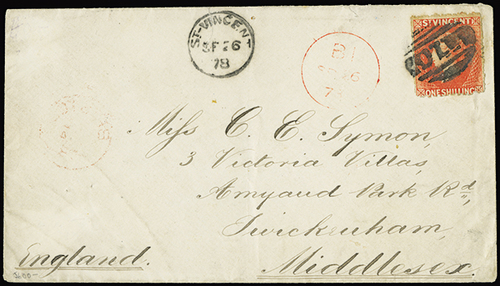 ST-VINCENT
SP 26
78
B1
ST. VINCENT
ONE SHILLING
Miss C. E. Symon,
3 Victoria Villas,
Amyaud Park Rd,
Twickenham,
England.
Middlesex.